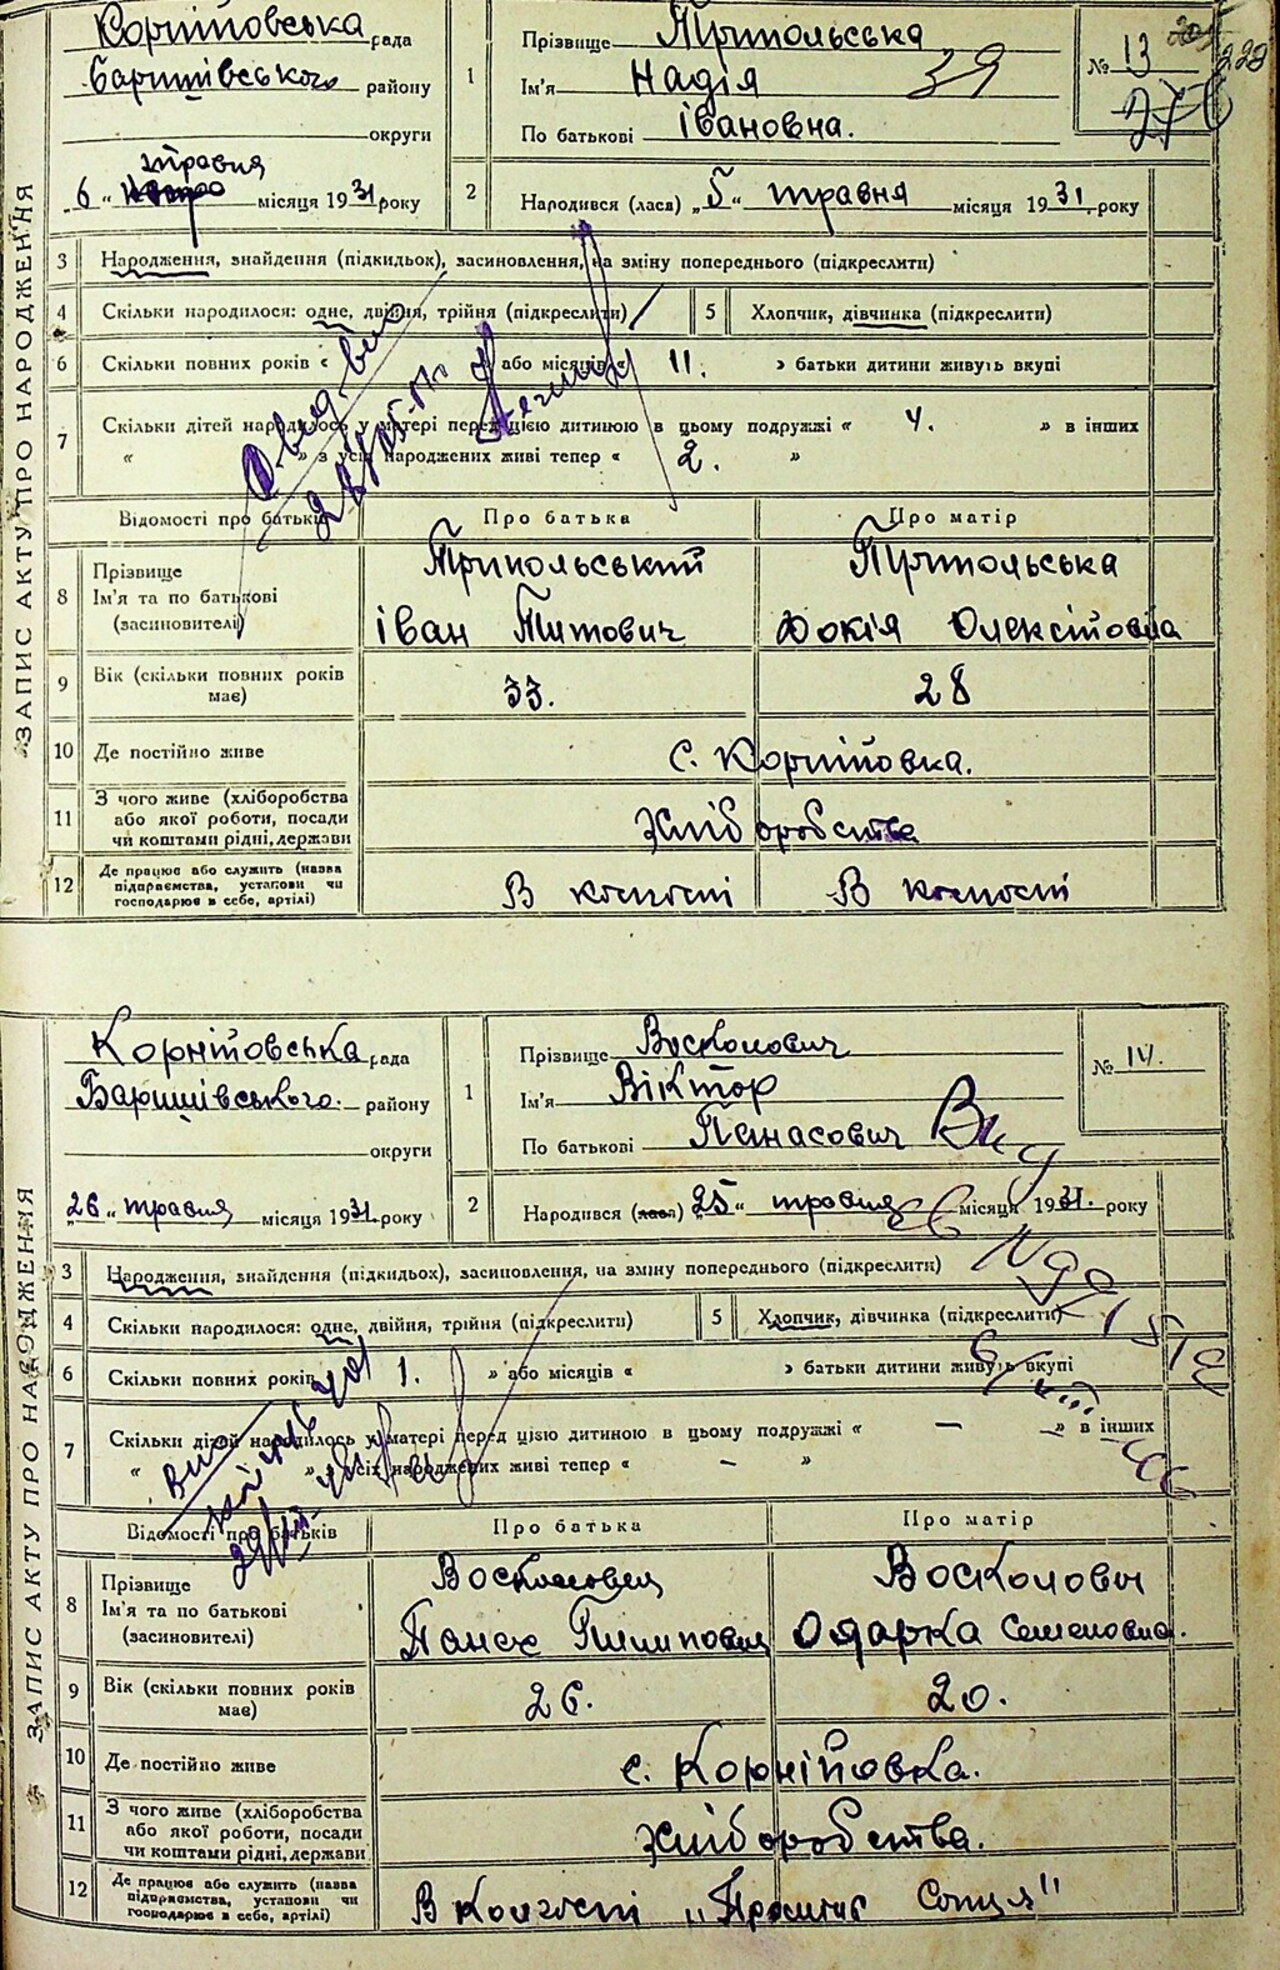 ЗАПИС АКТУ ПРО НАРОДЖЕННЯ
Корнійовська рада
Баришівського району
округи
„6“ травня місяця 1931 року
1
Прізвище Трипольська
Ім'я Надія
По батькові Івановна.
39
№ 13
228
276
2
Народився (лася) „5“ травня місяця 1931. року
3 Народження, знайдення (підкидьок), засиновлення, на зміну попереднього (підкреслити)
4 Скільки народилося: одне, двійня, трійня (підкреслити)
5 Хлопчик, дівчинка (підкреслити)
6 Скільки повних років « » або місяців « 11. » батьки дитини живуть вкупі
7 Скільки дітей народилось у матері перед цією дитиною в цьому подружжі « 4. » в інших
« » з усіх народжених живі тепер « 2. »
Відомості про батьків Про батька Про матір
8 Прізвище
Ім'я та по батькові
(засиновителі)
Трипольський
Іван Титович
Трипольська
Докія Олексійовна
9 Вік (скільки повних років має)
33. 28
10 Де постійно живе с. Корнійовка.
11 З чого живе (хліборобства
або якої роботи, посади
чи коштами рідні, держави
Хліборобства
12 Де працює або служить (назва
підприємства, установи чи
господарює в себе, артілі)
В колгоспі В колгоспі
ЗАПИС АКТУ ПРО НАРОДЖЕННЯ
Корнійовська рада
Баришівського району
округи
„26“ травня місяця 1931. року
1
Прізвище Восколович
Ім'я Віктор
По батькові Панасович
№ 14.
2
Народився (лася) „25“ травня місяця 1931. року
3 Народження, знайдення (підкидьок), засиновлення, на зміну попереднього (підкреслити)
4 Скільки народилося: одне, двійня, трійня (підкреслити)
5 Хлопчик, дівчинка (підкреслити)
6 Скільки повних років 1. » або місяців « » батьки дитини живуть вкупі
7 Скільки дітей народилось у матері перед цією дитиною в цьому подружжі « — » в інших
« » з усіх народжених живі тепер « — »
Відомості про батьків Про батька Про матір
8 Прізвище
Ім'я та по батькові
(засиновителі)
Восколович
Панас Пилипович
Восколович
Одарка Семеновна.
9 Вік (скільки повних років має)
26. 20.
10 Де постійно живе с. Корнійовка.
11 З чого живе (хліборобства
або якої роботи, посади
чи коштами рідні, держави
Хліборобства.
12 Де працює або служить (назва
підприємства, установи чи
господарює в себе, артілі)
В Колгоспі „Промінь Сонця"